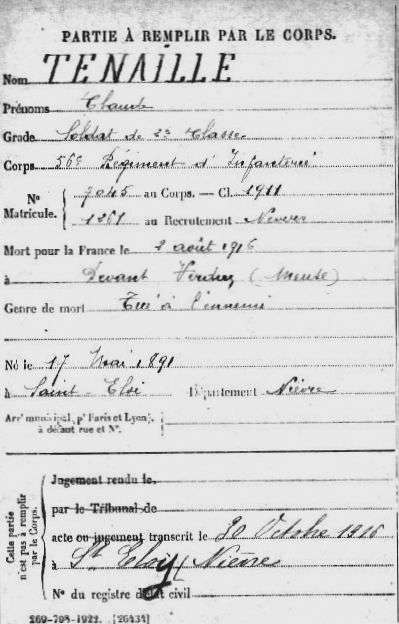 PARTIE À REMPLIR PAR LE CORPS.
Nom TENAILLE
Prénoms Claude
Grade Soldat de 2e Classe
Corps 56e Régiment d'Infanterie
N° Matricule. { 7045 au Corps. — Cl. 1911
1261 au Recrutement Nevers
Mort pour la France le 2 août 1916
à Devant Verdun (Meuse)
Genre de mort Tué à l'ennemi
Né le 17 Mai 1891
à Saint-Eloi Département Nièvre
Arrt municipal, pr Paris et Lyon,
à défaut rue et N°.
Cette partie n'est pas à remplir par le Corps.
Jugement rendu le
par le Tribunal de
acte ou jugement transcrit le 30 Octobre 1916
à St Eloy (Nièvre
N° du registre d'état civil
269-708-1922. [26434]